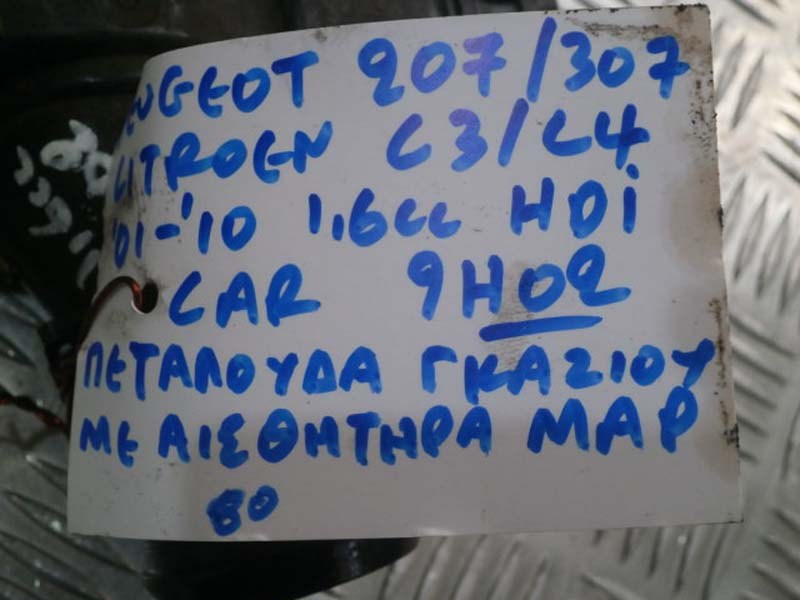 PEUGEOT 207/307
CITROEN C3/C4
'01-'10 1,6cc HDi
CAR 9H02
ΠΕΤΑΛΟΥΔΑ ΓΚΑΖΙΟΥ
ΜΕ ΑΙΣΘΗΤΗΡΑ MAP
80